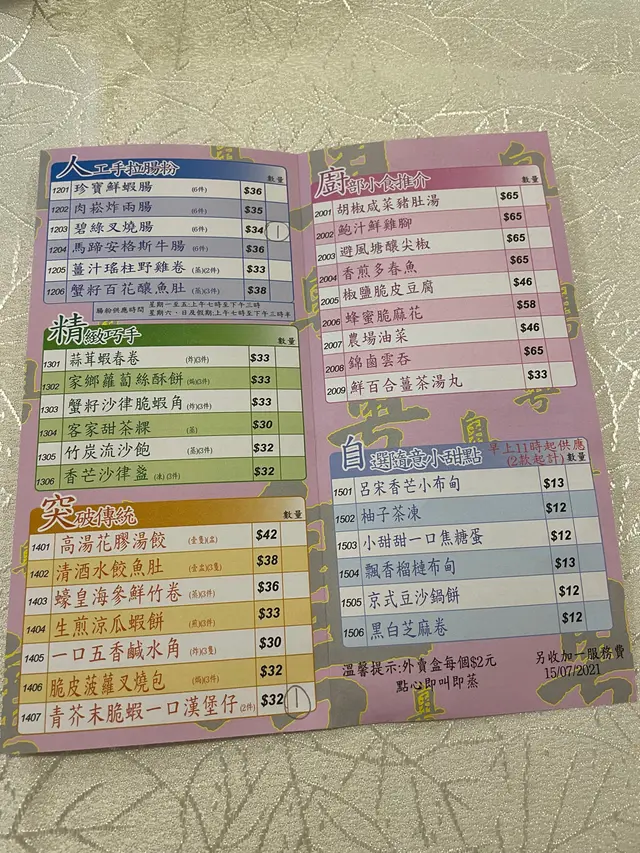 人工手拉腸粉 數量
1201 珍寶鮮蝦腸 (6件) $36
1202 肉崧炸兩腸 (6件) $35
1203 碧綠叉燒腸 (6件) $34 1
1204 馬蹄安格斯牛腸 (6件) $36
1205 薑汁瑤柱野雞卷 (蒸)(2件) $33
1206 蟹籽百花釀魚肚 (蒸)(3件) $38
腸粉供應時間
星期一至五:上午七時至下午三時
星期六、日及假期:上午七時至下午三時半
精緻巧手 數量
1301 蒜茸蝦春卷 (炸)(3件) $33
1302 家鄉蘿蔔絲酥餅 (焗)(3件) $33
1303 蟹籽沙律脆蝦角 (炸)(3件) $33
1304 客家甜茶粿 (蒸) $30
1305 竹炭流沙飽 (蒸)(3件) $32
1306 香芒沙律盞 (凍)(3件) $32
突破傳統 數量
1401 高湯花膠湯餃 (壹隻)(盅) $42
1402 清酒水餃魚肚 (壹盅)(3隻) $38
1403 蠔皇海參鮮竹卷 (蒸)(3件) $36
1404 生煎涼瓜蝦餅 (煎)(3件) $33
1405 一口五香鹹水角 (炸)(3隻) $30
1406 脆皮菠蘿叉燒包 (焗)(3件) $32
1407 青芥末脆蝦一口漢堡仔 (2件) $32 1
廚部小食推介 數量
2001 胡椒咸菜豬肚湯 $65
2002 鮑汁鮮雞腳 $65
2003 避風塘釀尖椒 $65
2004 香煎多春魚 $65
2005 椒鹽脆皮豆腐 $46
2006 蜂蜜脆麻花 $58
2007 農場油菜 $46
2008 錦鹵雲吞 $65
2009 鮮百合薑茶湯丸 $33
自選隨意小甜點 早上11時起供應
(2款起計) 數量
1501 呂宋香芒小布甸 $13
1502 柚子茶凍 $12
1503 小甜甜一口焦糖蛋 $12
1504 飄香榴槤布甸 $13
1505 京式豆沙鍋餅 $12
1506 黑白芝麻卷 $12
溫馨提示:外賣盒每個$2元
點心即叫即蒸
另收加一服務費
15/07/2021